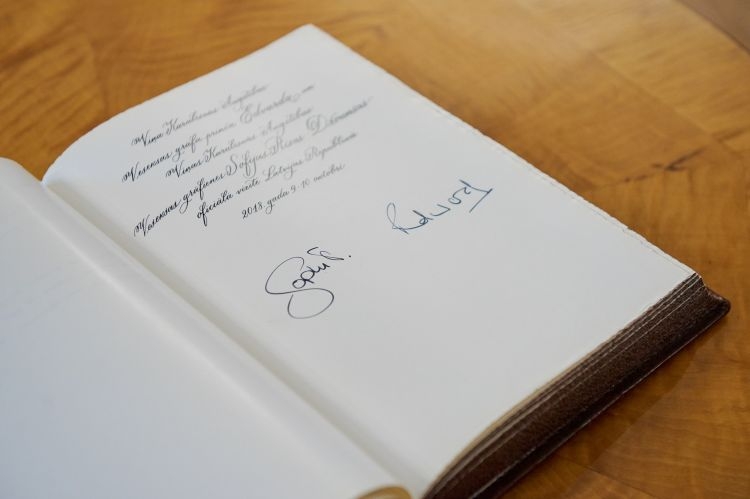 Viņa Karaliskās Augstības
Veseksas grāfa prinča Edvarda un
Viņas Karaliskās Augstības
Veseksas grāfienes Sofijas Rīsas Džonsones
oficiālā vizīte Latvijas Republikā
2013. gada 9.-10. oktobrī
Edward
Sophie